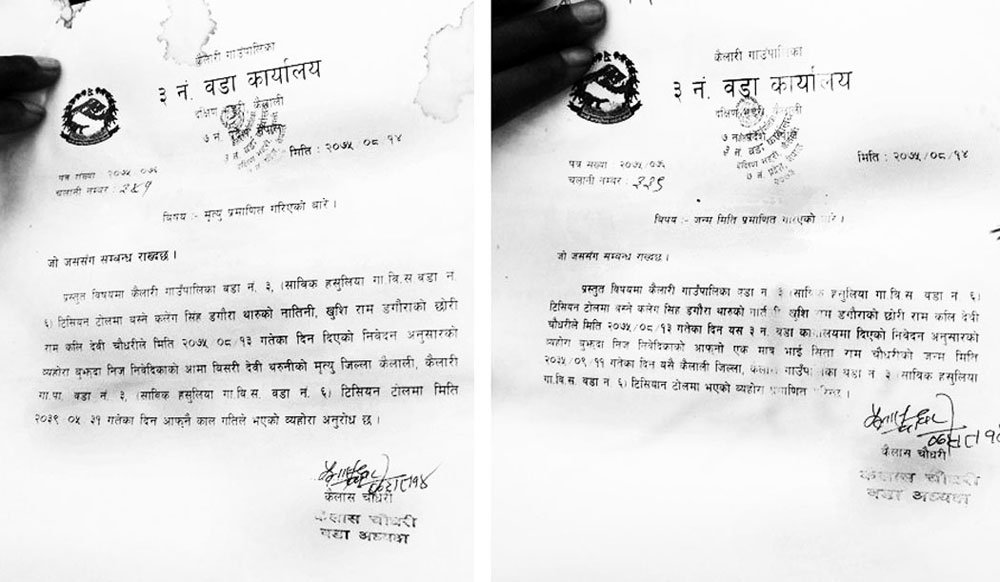 कैलारी गाउँपालिका
३ नं. वडा कार्यालय
दक्षिण भहरी कैलाली
मिति : २०७५ ०८ १४
पत्र संख्या २०७५ ०७६
चलानी नम्बर :
विषय :- मृत्यु प्रमाणित गरिएको बारे ।
जो जससंग सम्बन्ध राख्दछ ।
प्रस्तुत विषयमा कैलारी गाउँपालिका वडा नं. ३, (साविक हसुलिया गा.वि.स वडा नं.
६) टिसियन टोलमा बस्ने कलेंग सिंह डगौरा थारुको नातिनी, खुशि राम डगौराको छोरी
राम कलि देवी चौधरीले मिति २०७५/०८/१३ गतेका दिन दिएको निवेदन अनुसारको
व्यहोरा बुझ्दा निज निवेदिकाको आमा बिसरी देवी थरुनीको मृत्यु जिल्ला कैलाली, कैलारी
गा.पा. वडा नं. ३, (साविक हसुलिया गा.वि.स. वडा नं. ६) टिसियन टोलमा मिति
२०३९ ०५ ३१ गतेका दिन आफ्नै काल गतिले भएको व्यहोरा अनुरोध छ ।
कैलास चौधरी
कैलास चौधरी
वडा अध्यक्ष
कैलारी गाउँपालिका
३ नं. वडा कार्यालय
मिति : २०७५/०८/१४
पत्र संख्या : २०७५/०७६
चलानी नम्बर : ३३९
विषय :- जन्म मिति प्रमाणित गरिएको बारे ।
जो जससंग सम्बन्ध राख्दछ ।
प्रस्तुत विषयमा कैलारी गाउँपालिका वडा नं ३ (साविक हसुलिया गा.वि.स वडा नं. ६)
टिसियन टोलमा बस्ने कलेंग सिंह डगौरा थारुको खुशि राम डगौराको छोरी राम कलि देवी
चौधरीले मिति २०७५/०८/१३ गतेका दिन यस ३ नं. वडा कार्यालयमा दिएको निवेदन अनुसारको
व्यहोरा बुझ्दा निज निवेदिकाको आफ्नो एक मात्र भाई सिता राम चौधरीको जन्म मिति
२०३५/०९/११ गतेका दिन यसै कैलाली जिल्ला, गाउँपालिका वडा नं ३ (साविक हसुलिया
गा.वि.स. वडा नं. ६) टिसियान टोलमा भएको व्यहोरा प्रमाणित
कैलास चौधरी
कैलास चौधरी
वडा अध्यक्ष